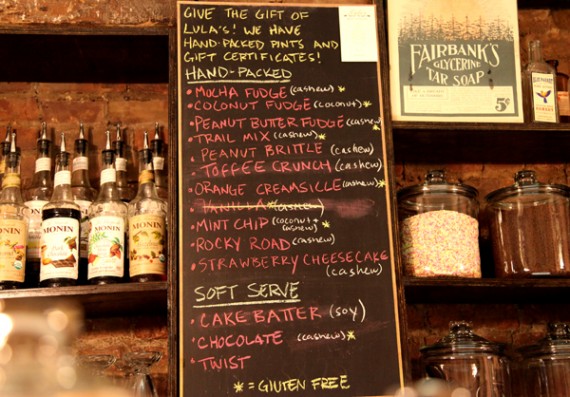 GIVE THE GIFT OF
LULA'S! WE HAVE
HAND-PACKED PINTS AND
GIFT CERTIFICATES!
HAND-PACKED
• MOCHA FUDGE (cashew) *
• COCONUT FUDGE (coconut) *
• PEANUT BUTTER FUDGE (cashew) *
• TRAIL MIX (cashew) *
• PEANUT BRITTLE (cashew)
• TOFFEE CRUNCH (cashew)
• ORANGE CREAMSICLE (cashew) *
• VANILLA (cashew) *
• MINT CHIP (coconut + cashew) *
• ROCKY ROAD (cashew)
• STRAWBERRY CHEESECAKE
(cashew)
SOFT SERVE
• CAKE BATTER (soy)
• CHOCOLATE (cashew) *
• TWIST
* = GLUTEN FREE
FAIRBANK'S
GLYCERINE
TAR SOAP
5¢
MONIN
MONIN
MONIN
MONIN